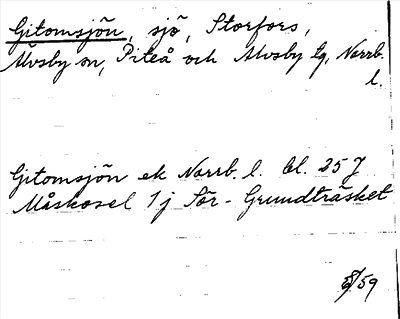 Gitomsjön, sjö, Storfors,
Älvsby sn, Piteå och Älvsby tg, Norrb.
l.
Gitomsjön ek Norrb. l. bl. 25 7
Måskosel 1j Sör-Grundträsket
/59